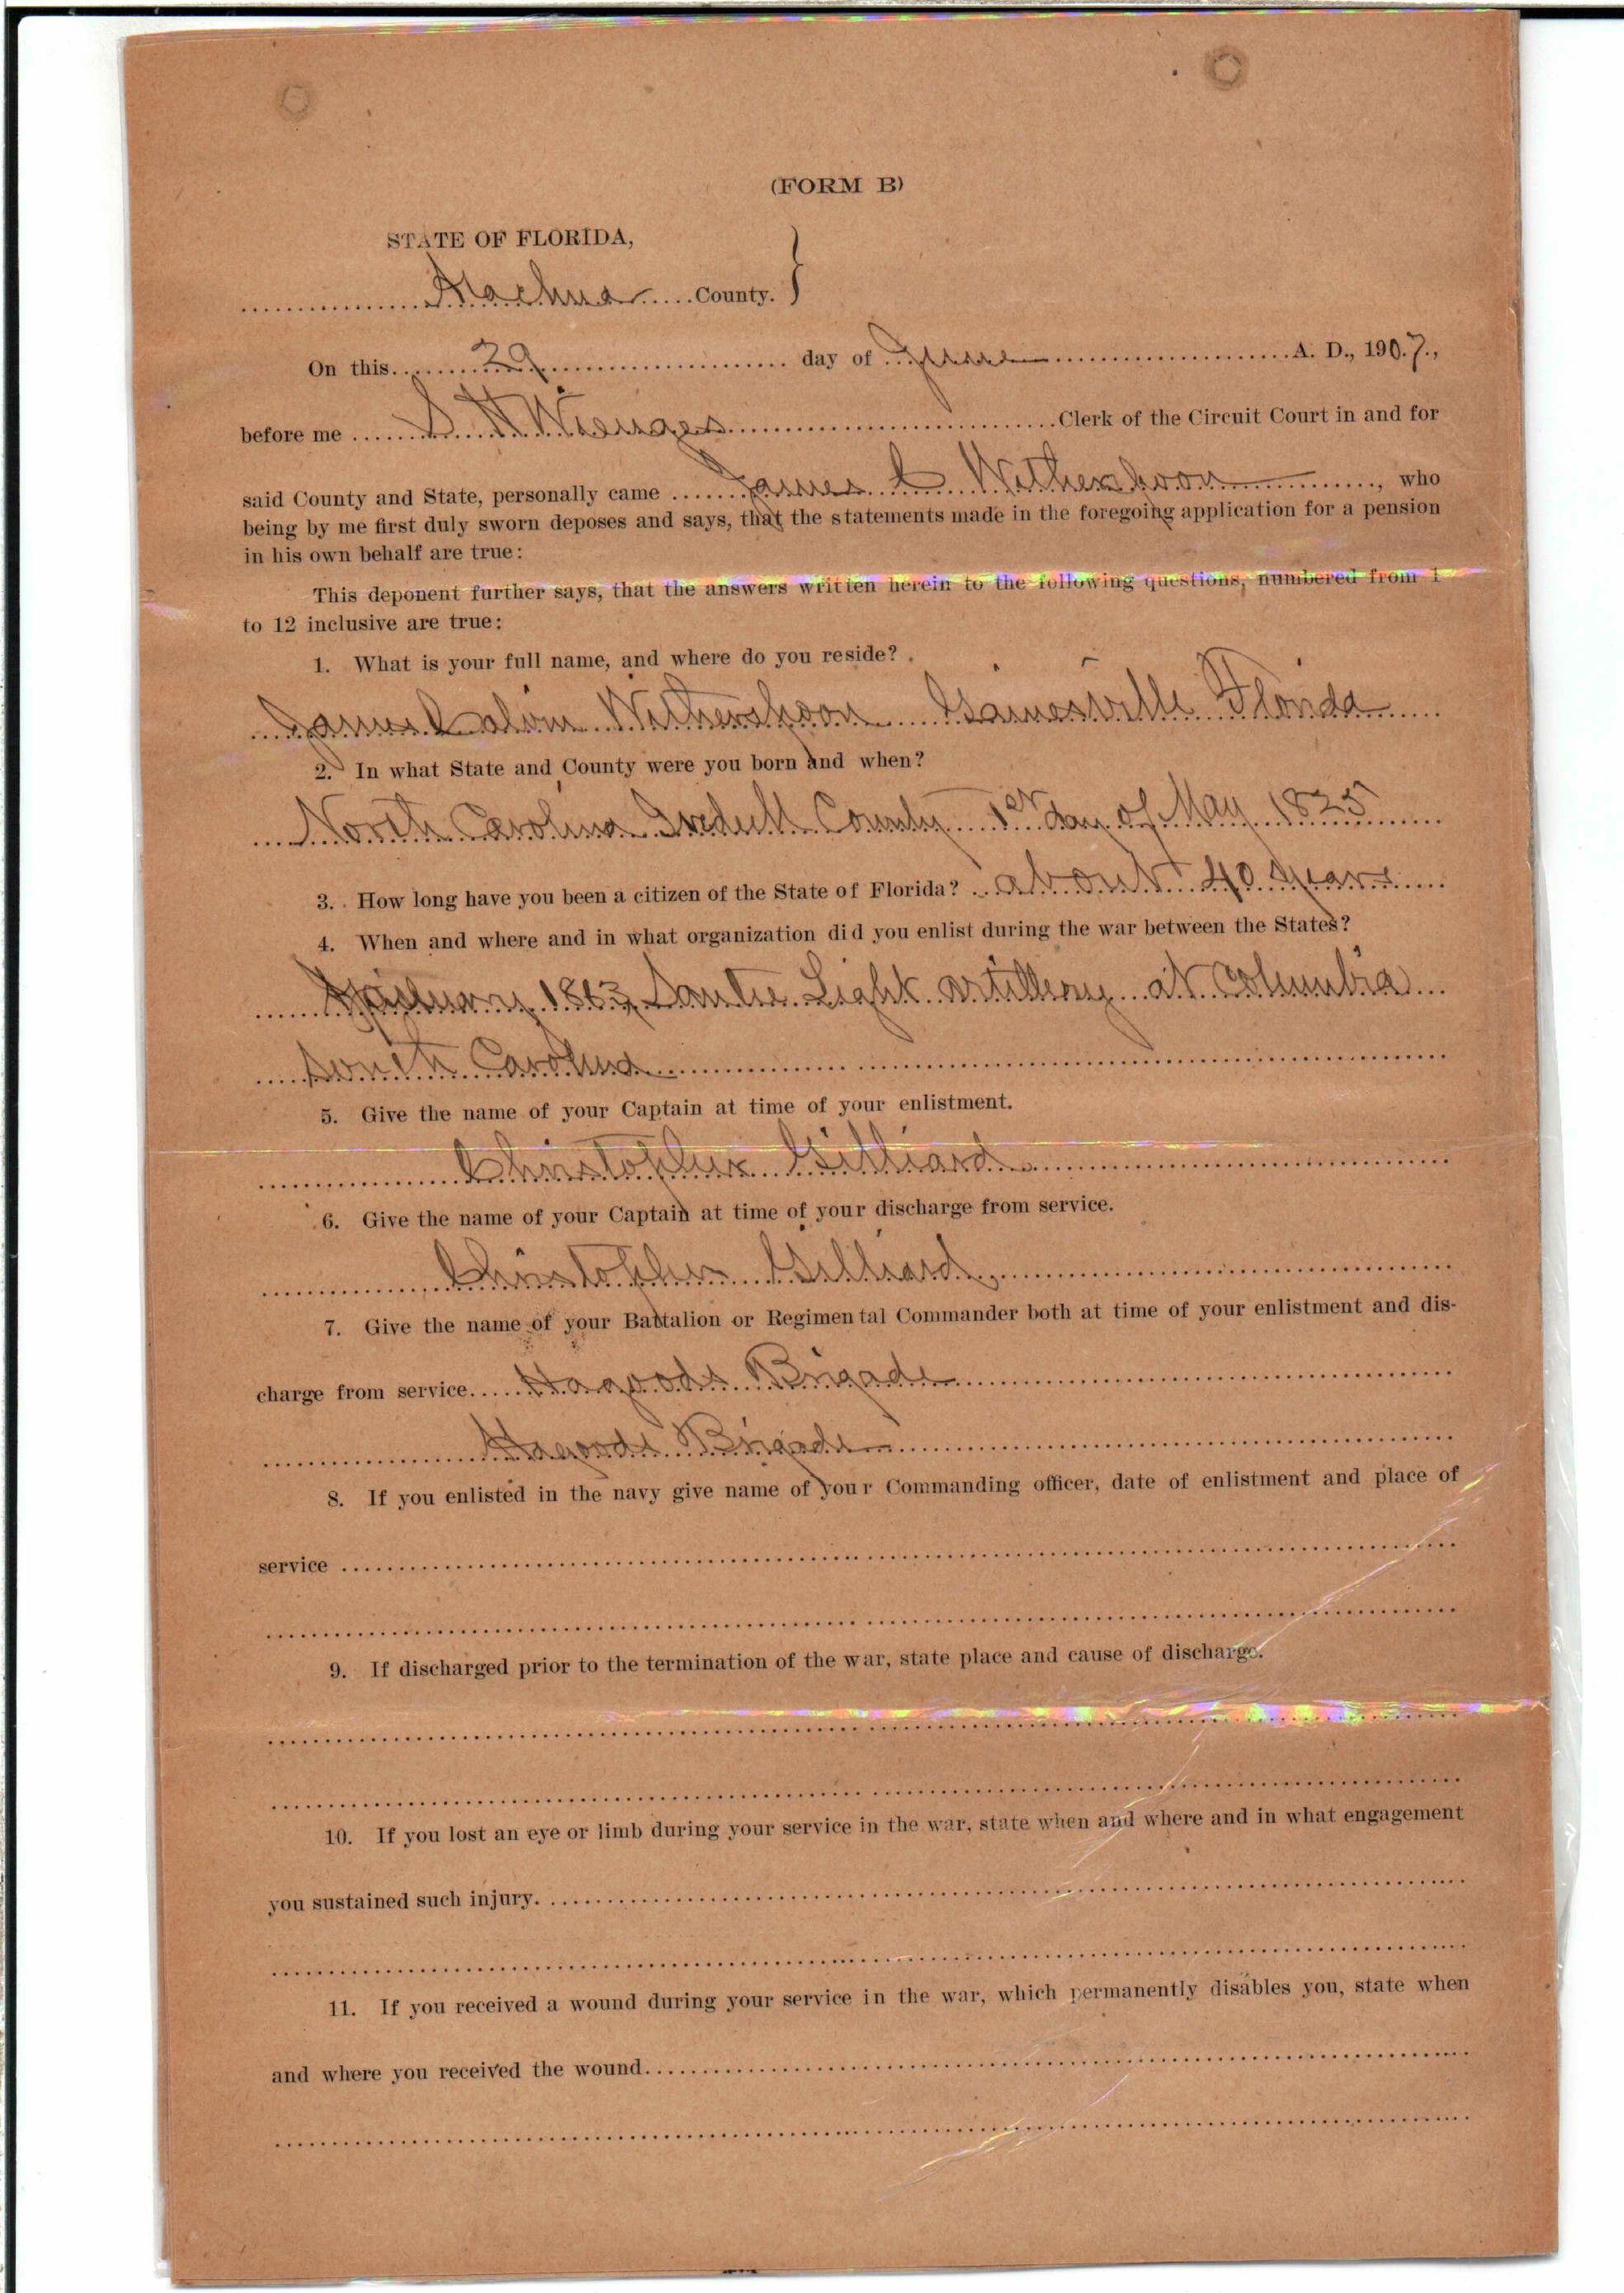 (FORM B)
STATE OF FLORIDA,
Alachua County.
On this 29 day of June A. D., 1907.,
before me S H Wienges Clerk of the Circuit Court in and for
said County and State, personally came James C Witherspoon, who
being by me first duly sworn deposes and says, that the statements made in the foregoing application for a pension
in his own behalf are true:
This deponent further says, that the answers written herein to the following questions, numbered from 1
to 12 inclusive are true:
1. What is your full name, and where do you reside?
James Calvin Witherspoon Gainesville Florida
2. In what State and County were you born and when?
North Carolina Iredell County 1st day of May 1825
3. How long have you been a citizen of the State of Florida? about 40 years
4. When and where and in what organization did you enlist during the war between the States?
1863, Santee Light artillery at Columbia
South Carolina
5. Give the name of your Captain at time of your enlistment.
Christopher Gilliard
6. Give the name of your Captain at time of your discharge from service.
Christopher Gilliard
7. Give the name of your Battalion or Regimental Commander both at time of your enlistment and dis-
charge from service Hagoods Brigade
Hagoods Brigade
8. If you enlisted in the navy give name of your Commanding officer, date of enlistment and place of
service
9. If discharged prior to the termination of the war, state place and cause of discharge.
10. If you lost an eye or limb during your service in the war, state when and where and in what engagement
you sustained such injury.
11. If you received a wound during your service in the war, which permanently disables you, state when
and where you received the wound.